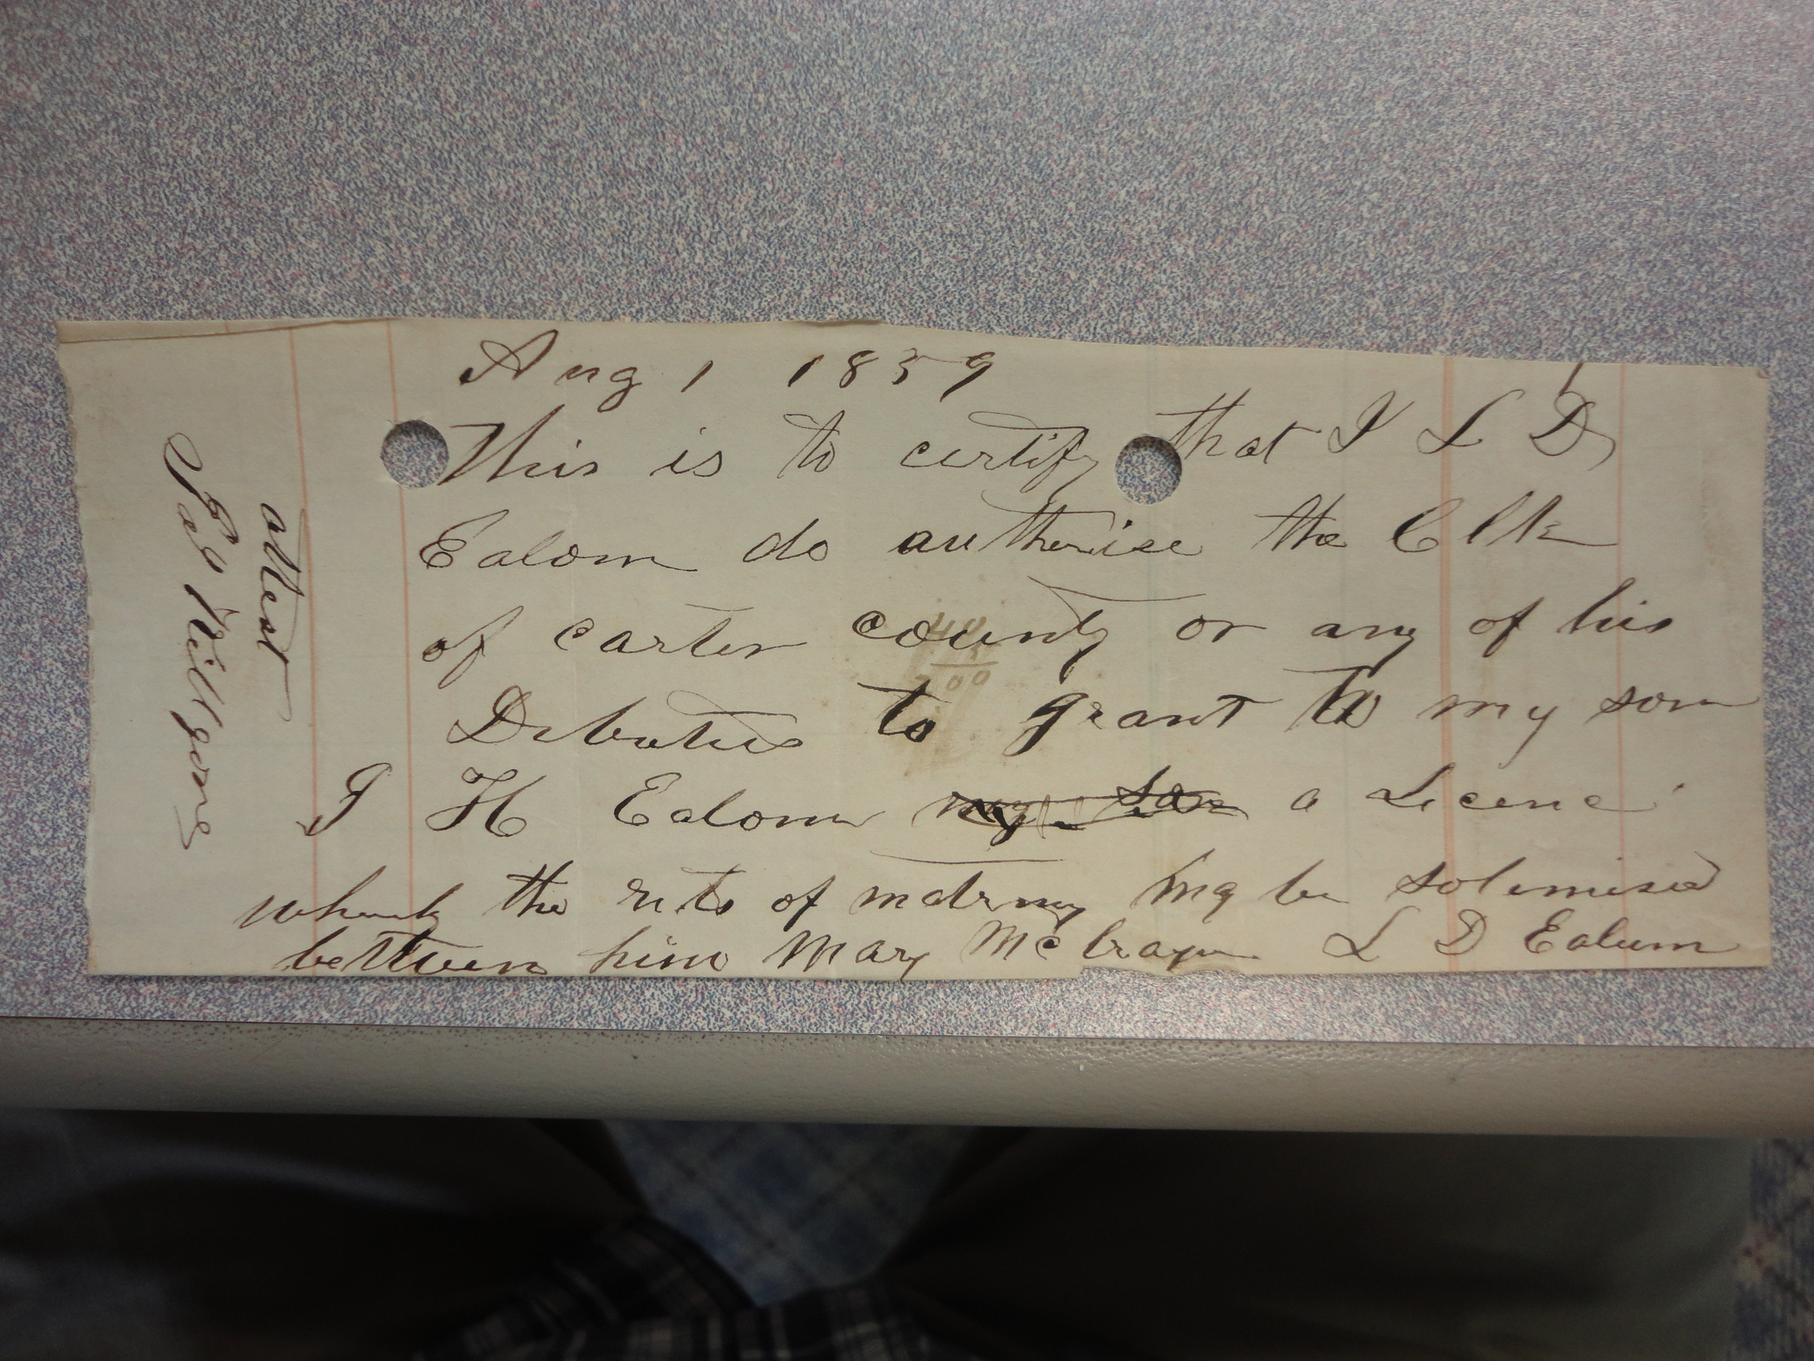 Aug 1 1859
This is to certify that I L D
Ealom do autherise the Clk
of carter county or any of his
Debuties to grant to my son
J H Ealom my son a Licence
whereby the rits of matrmy may be solemised
between him Mary McCrayu L D Ealum
attest
Jas Killgore